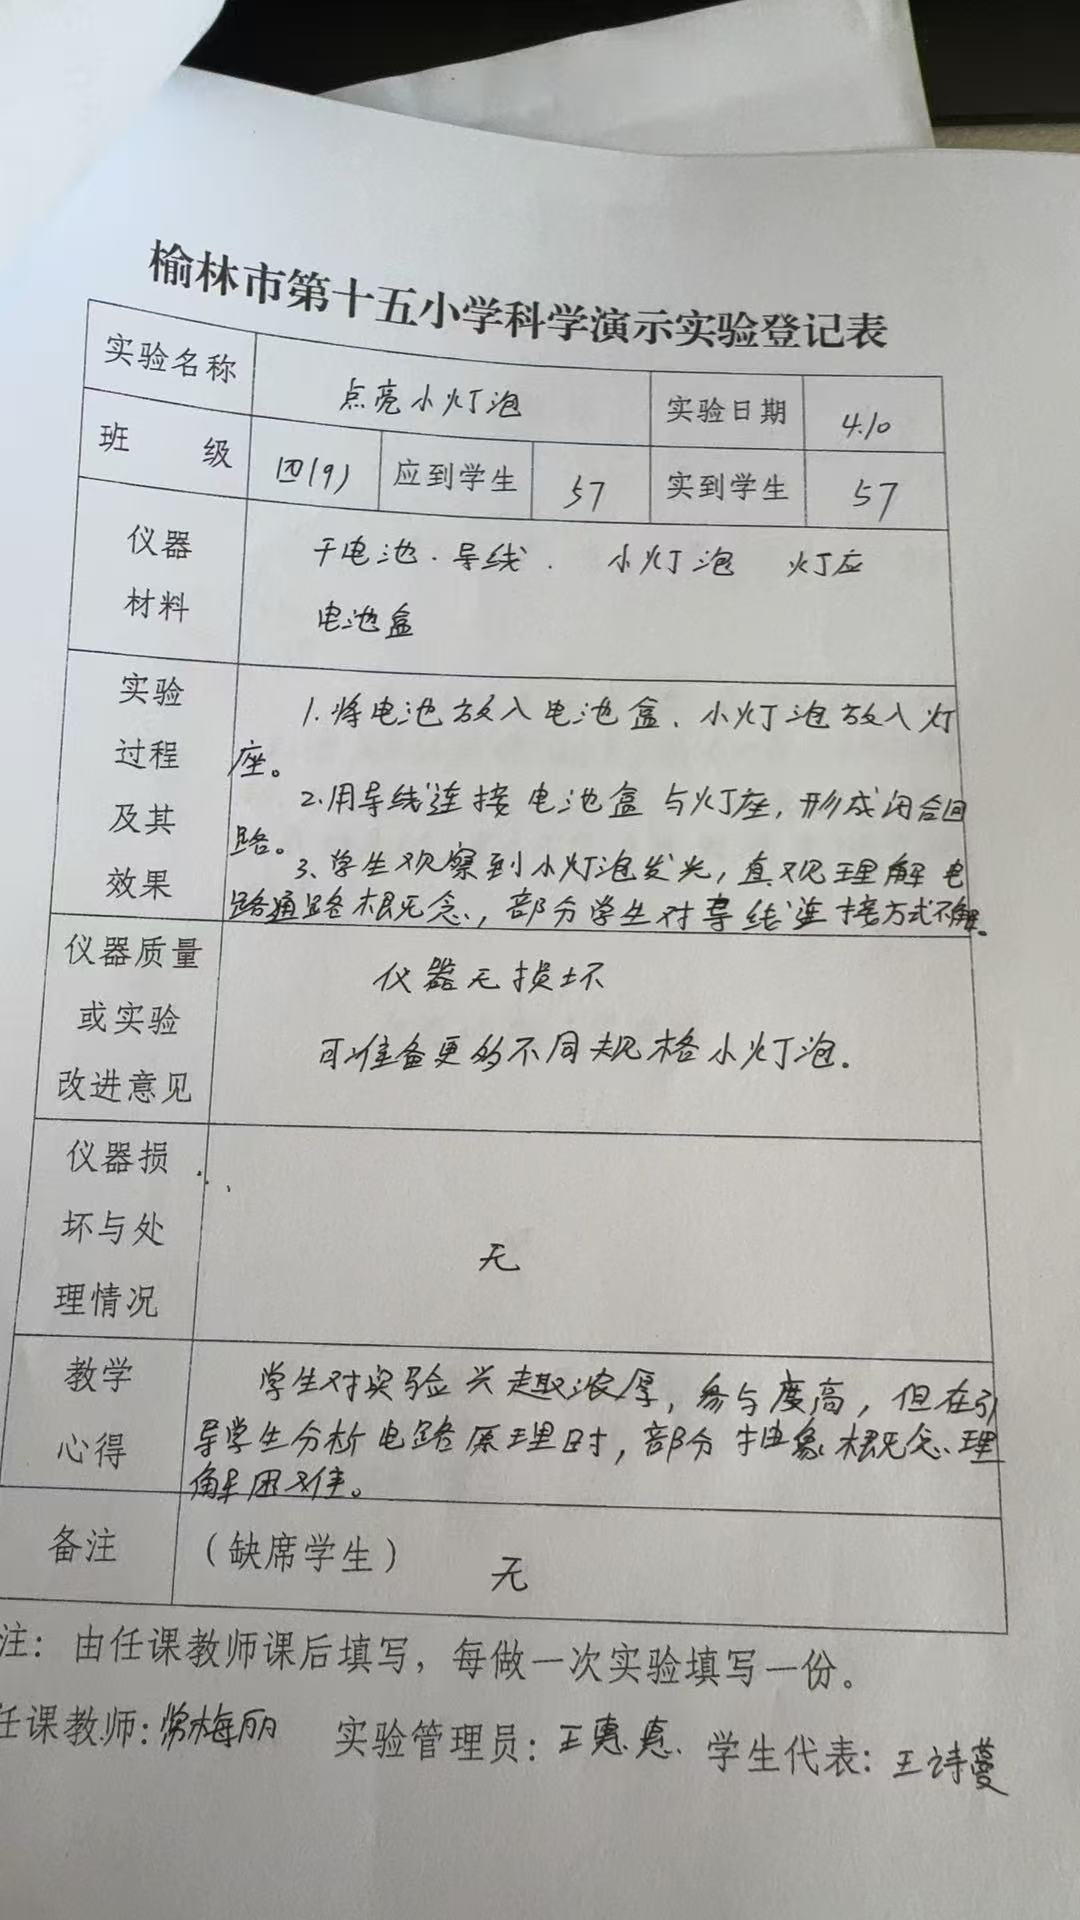 榆林市第十五小学科学演示实验登记表
实验名称 点亮小灯泡 实验日期 4.10
班 级 四(9) 应到学生 57 实到学生 57
仪器 干电池.导线. 小灯泡 灯应
材料 电池盒
实验 1.将电池放入电池盒、小灯泡放入灯
过程 座。
及其 2.用导线连接电池盒与灯座,形成闭合回
路。
效果 3、学生观察到小灯泡发光,直观理解电
路通路概念,部分学生对导线连接方式不解。
仪器质量 仪器无损坏
或实验
改进意见 可准备更多不同规格小灯泡.
仪器损
坏与处 无
理情况
教学 学生对实验兴趣浓厚,参与度高,但在引
心得 导学生分析电路原理时,部分抽象概念理
解困难。
备注 (缺席学生) 无
注:由任课教师课后填写,每做一次实验填写一份。
任课教师:常梅丽 实验管理员:王惠惠. 学生代表:王诗蔓